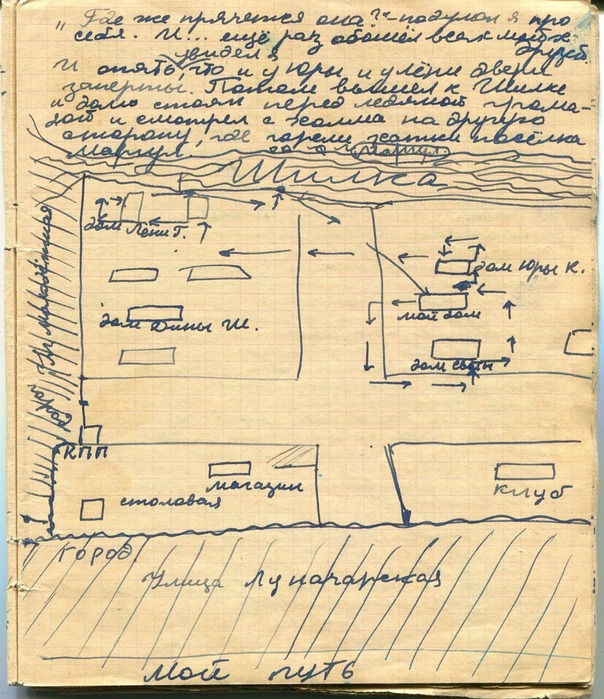 „Где же прячется она?“ подумал я про
себя. И... ещё раз обошёл всех моих
друзей.
увидел я
И опять, что и у Юры и у Лёни двери
заперты. Потом вышел к Шилке
и долго стоял перед ледяной грома-
дой и смотрел с холма на другую
сторону, где горели огоньки посёлка
Маргул.
Шилка
дом Лени Т.
дом Юры К.
мой дом
дом Ш.
дом
КПП
магазин
столовая
клуб
город
Улица Луначарская
Мой путь